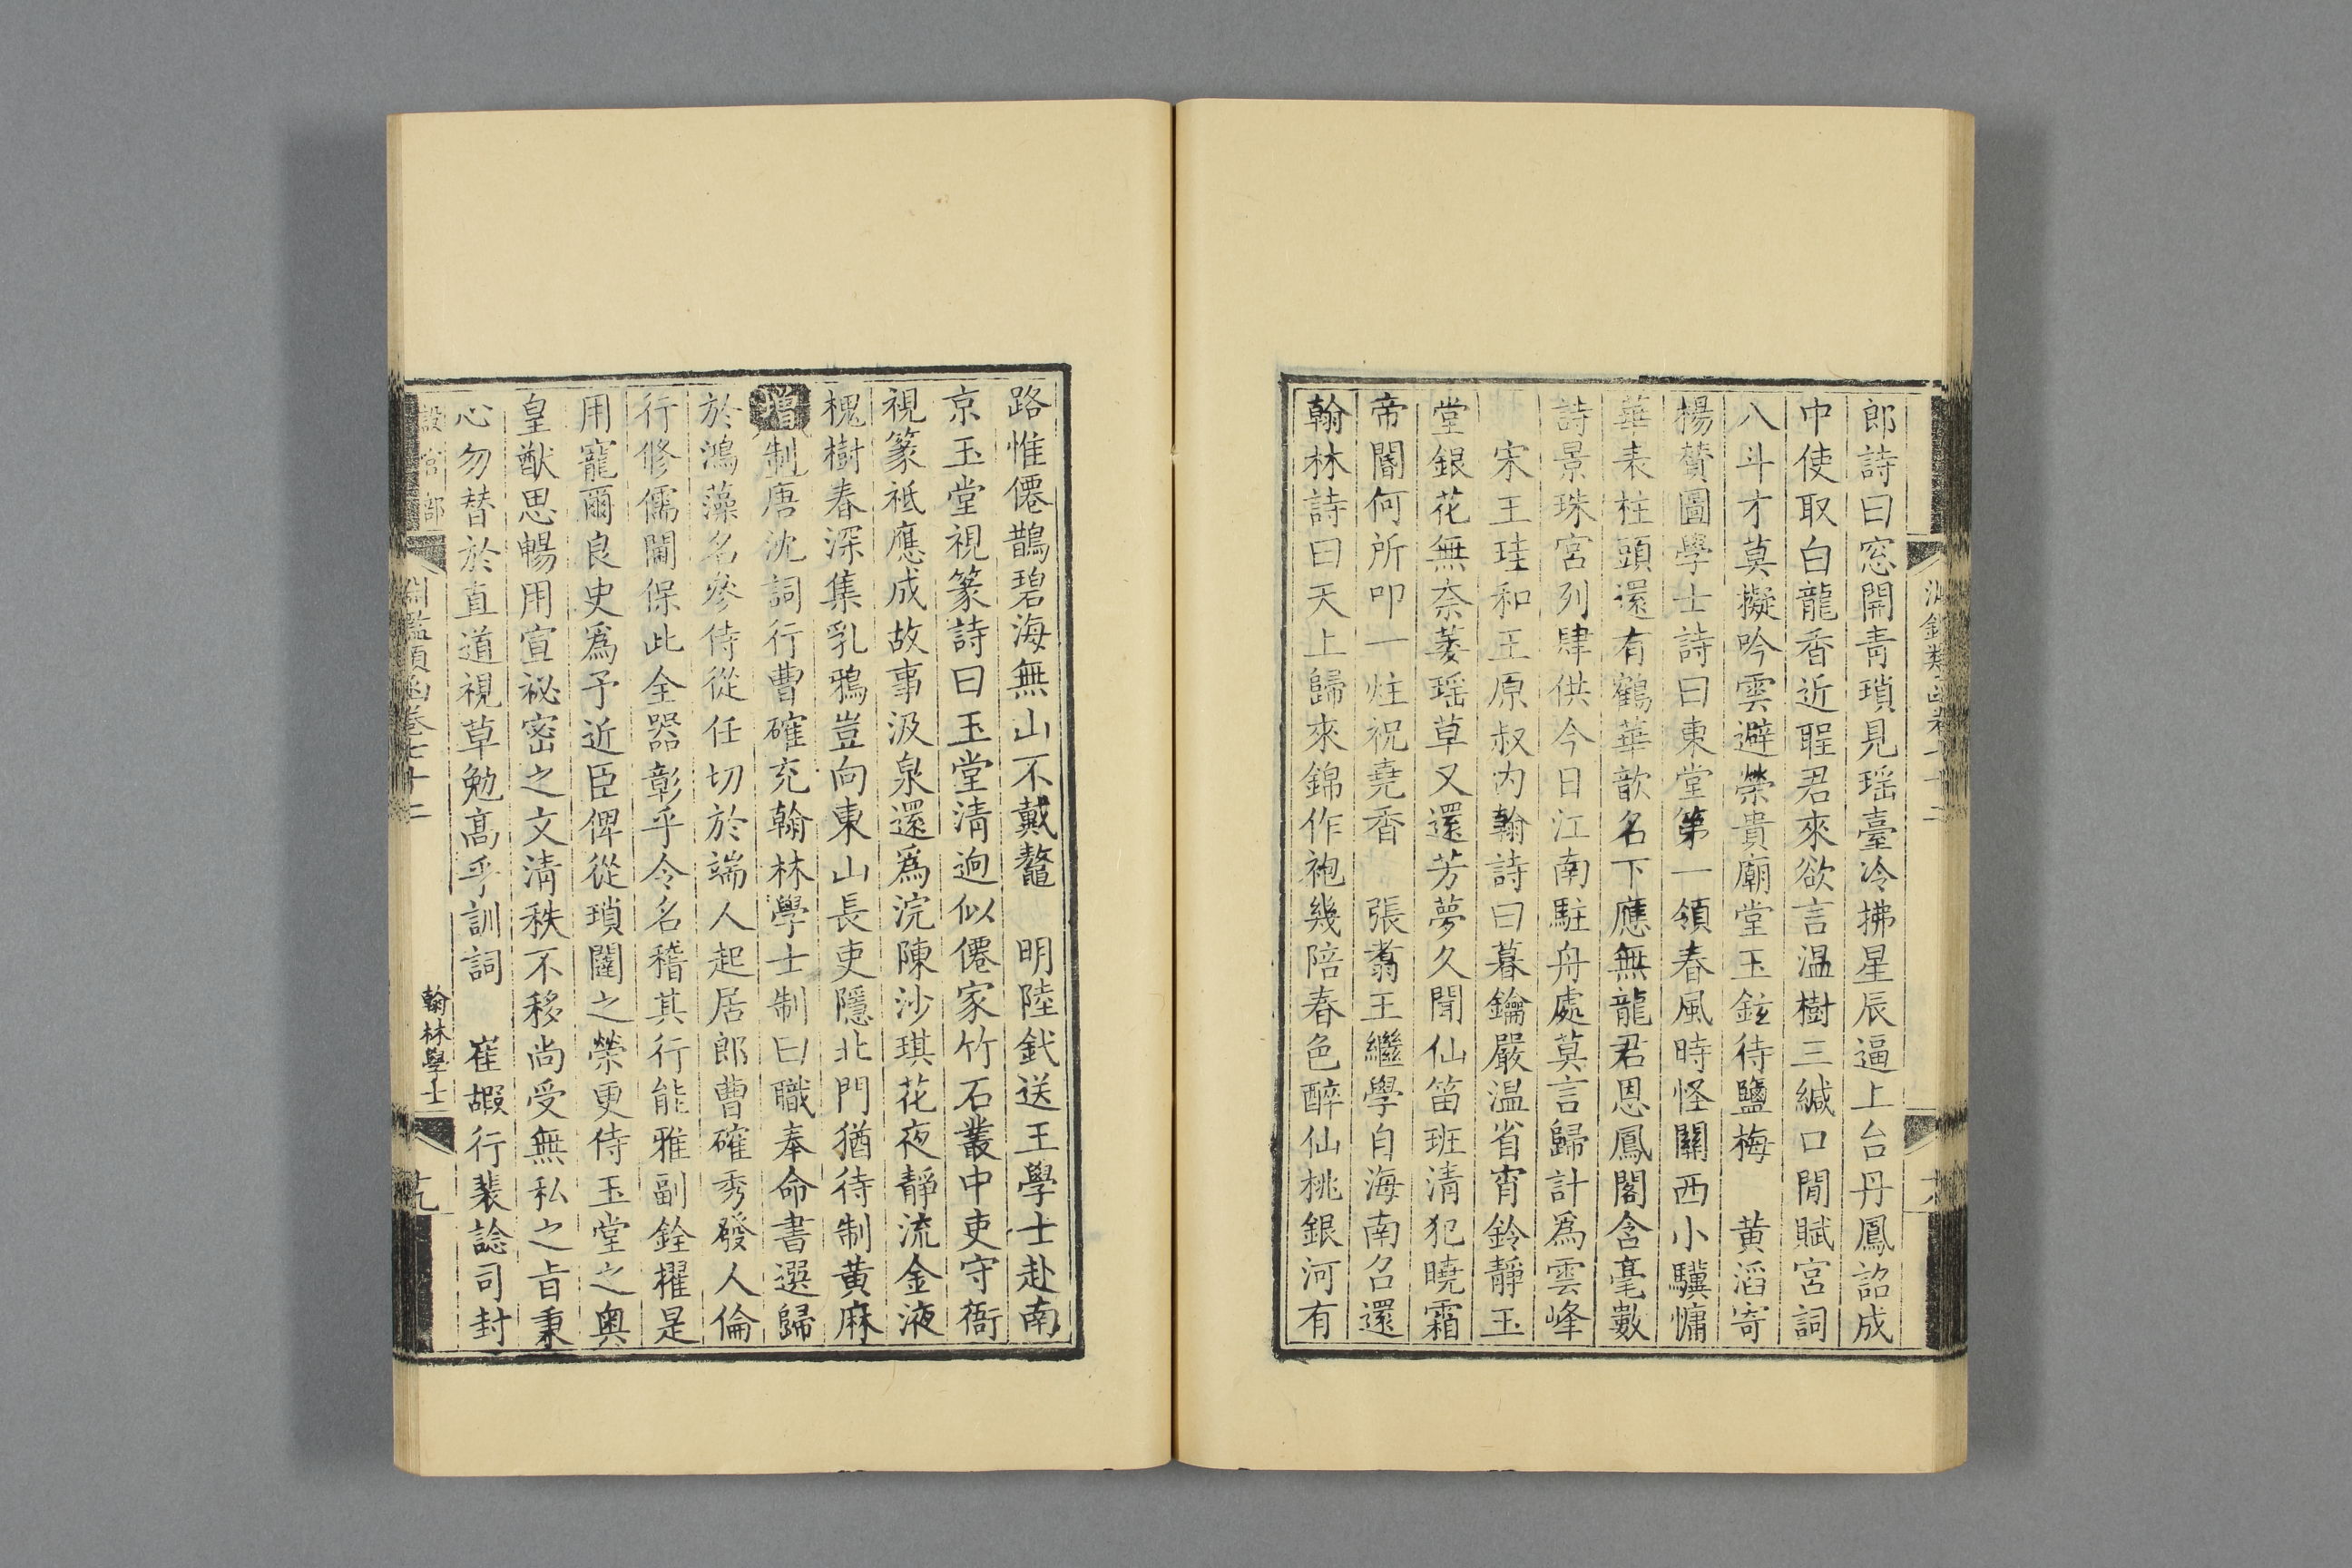 郎詩曰窓開青瑣見瑶臺冷拂星辰逼上台丹鳳詔成
中使取白龍香近聖君來欲言温樹三緘口閒賦宮詞
八斗才莫擬吟雲避榮貴廟堂玉鉉待鹽梅　黄滔寄
楊贊圖學士詩曰東堂第一領春風時怪關西小驥慵
華表柱頭還有鶴華歆名下應無龍君恩鳳閣含毫數
詩景珠宮列肆供今日江南駐舟處莫言歸計爲雲峰
宋王珪和王原叔内翰詩曰暮鑰嚴温省宵鈴靜玉
堂銀花無柰蔞瑶草又還芳夢久聞仙笛班清犯曉霜
帝閽何所叩一炷祝堯香　張翥王繼學自海南召還
翰林詩曰天上歸來錦作袍幾陪春色醉仙桃銀河有
路惟僊鵲碧海無山不戴鼇　明陸釴送王學士赴南
京玉堂視篆詩曰玉堂清逈似僊家竹石叢中吏守衙
視篆祗應成故事汲泉還爲浣陳沙琪花夜靜流金液
槐樹春深集乳鴉豈向東山長吏隱北門猶待制黄麻
增制唐沈詞行曹確充翰林學士制曰職奉命書選歸
於鴻藻名參侍從任切於端人起居郎曹確秀發人倫
行修儒閫保此全器彰乎令名稽其行能雅副銓擢是
用寵爾良史爲予近臣俾從瑣闥之榮更侍玉堂之奥
皇猷思暢用宣祕密之文清秩不移尚受無私之旨秉
心勿替於直道視草勉髙乎訓詞　崔嘏行裴諗司封
設官部
淵鑑類函卷七十二
翰林學士